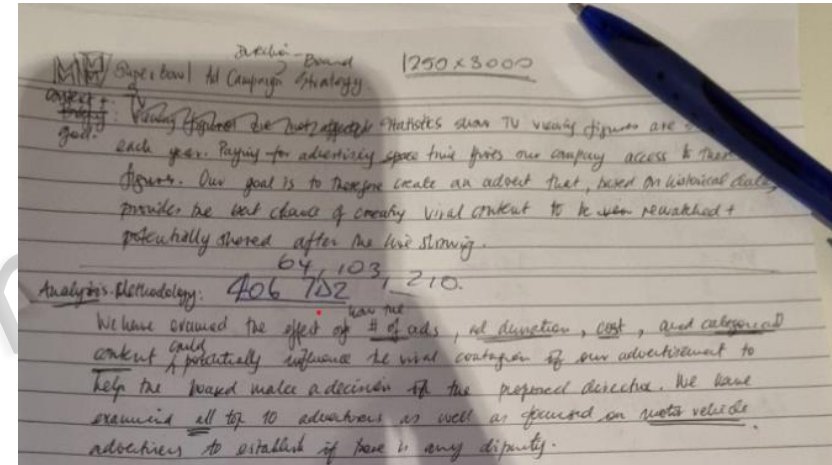 1250 x 3000
Superbowl Ad Campaign Strategy
goal: Statistics show TU viewing figures are
each year. Paying for advertising space gives our company access to
figures. Our goal is to therefore create an advert that, based on historical data,
provides the best chance of creating viral content to be rewatched +
potentially shared after the live showing.
64, 103, 210.
Analysis Methodology: 406
how the
We have examined the effect of # of ads, ad duration, cost, and categorical
could
content potentially influence the viral contagion of our advertisement to
help the board make a decision the proposed direction. We have
examined all top 10 advertisers as well as focused on motor vehicle
advertisers to establish if there is any disparity.